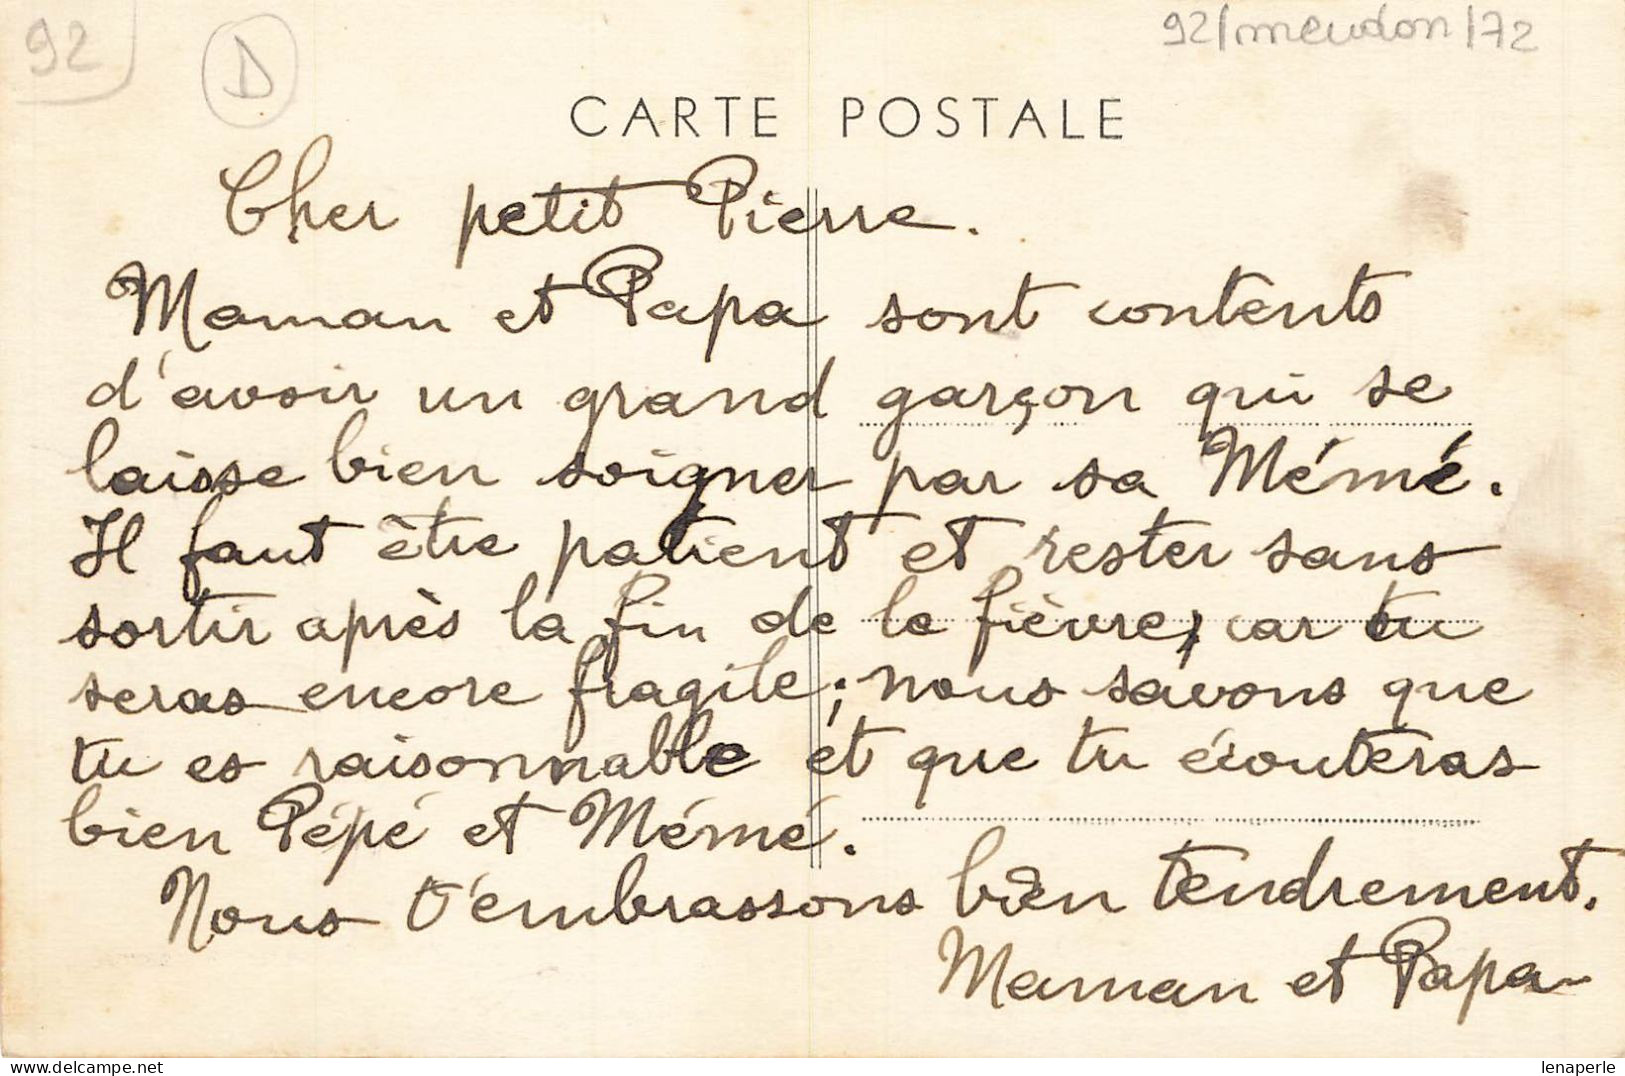 92
D
92/meudon/72
CARTE POSTALE
Cher petit Pierre.
Maman et Papa sont contents
d'avoir un grand garçon qui se
laisse bien soigner par sa Mémé.
Il faut être patient et rester sans
sortir après la fin de la fièvre, car tu
seras encore fragile; nous savons que
tu es raisonnable et que tu écouteras
bien Pépé et Mémé.
Nous t'embrassons bien tendrement.
Maman et Papa
www.delcampe.net
lenaperle